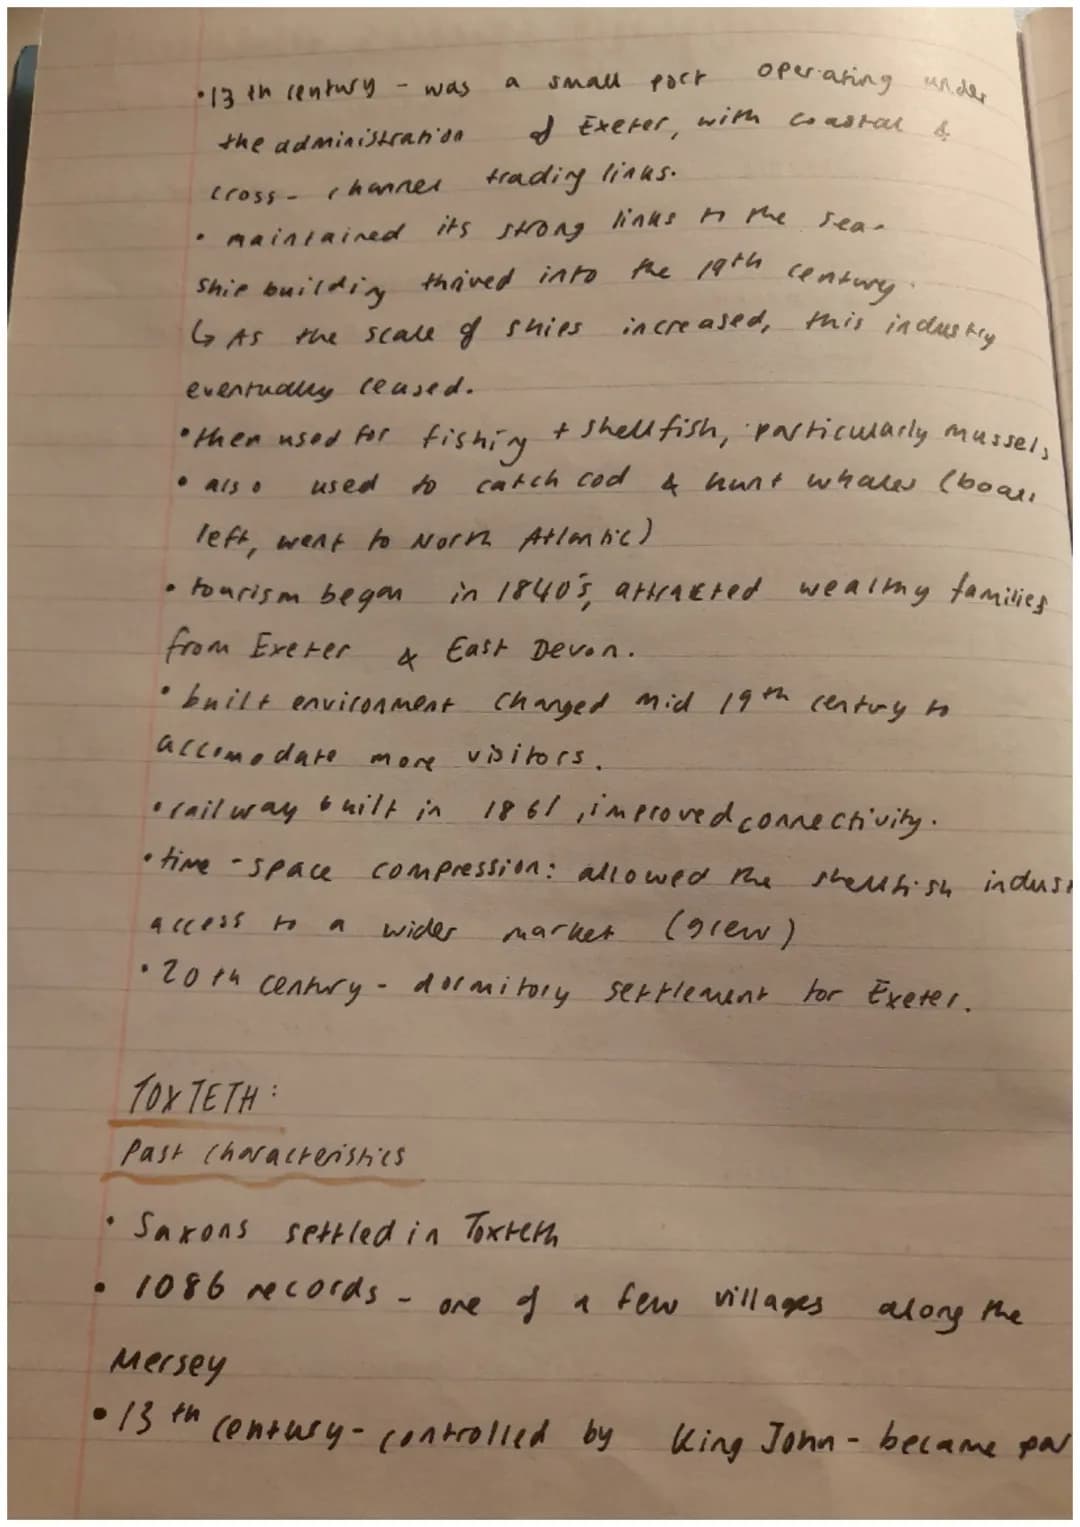 •13th century - was a small port operating under
the administration of Exeter, with coastal &
cross-channel trading links.
• maintained its strong links to the sea -
ship building thrived into the 19th century.
↳ As the scale of ships increased, this industry
eventually ceased.
• then used for fishing + shellfish, particularly mussels
• also used to catch cod & hunt whales (boats
left, went to North Atlantic)
• tourism began in 1840's, attracted wealthy families
from Exeter & East Devon.
• built environment changed mid 19th century to
accomodate more visitors.
• railway built in 1861, improved connectivity.
• time-space compression: allowed the shellfish indust
access to a wider market (grew)
• 20th century - dormitory settlement for Exeter.
TOXTETH:
Past characteristics
• Saxons settled in Toxteth
• 1086 records - one of a few villages along the
Mersey
• 13th century - controlled by King John - became par